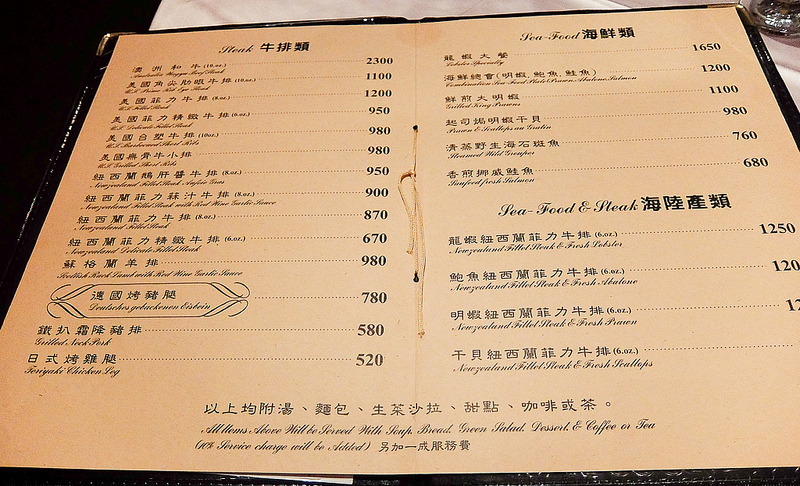 Steak 牛排類
澳洲和牛(10.oz.) 2300
Australia Wagyu Beef Steak
美國角尖肋眼牛排(10.oz.) 1100
U.S. Prime Rib Eye Steak
美國菲力牛排(8.oz.) 1200
U.S. Fillet Steak
美國菲力精緻牛排(6.oz.) 950
U.S. Delicate Fillet Steak
美國台塑牛排(10oz.) 980
U.S. Barbecued Short Ribs
美國無骨牛小排 980
U.S. Grilled Short Ribs
紐西蘭鵝肝醬牛排(8.oz.) 950
Newzealand Fillet Steak Aufoie Gras
紐西蘭菲力蒜汁牛排(8.oz.) 900
Newzealand Fillet Steak with Red Wine Garlic Sauce
紐西蘭菲力牛排(8.oz.) 870
Newzealand Fillet Steak
紐西蘭菲力精緻牛排(6.oz.) 670
Newzealand Delicate Fillet Steak
蘇格蘭羊排 980
Scottish Rack Lamb with Red Wine Garlic Sauce
德國烤豬腿 780
Deutsches gebackenen Eisbein
鐵扒霜降豬排 580
Grilled Neck Pork
日式烤雞腿 520
Teriyaki Chicken Leg
Sea-Food 海鮮類
龍蝦大餐 1650
Lobster Specialty
海鮮總會(明蝦,鮑魚,鮭魚) 1200
Combination Sea-Food Plate Prawn, Abalone, Salmon
鮮煎大明蝦 1100
Grilled King Prawns
起司焗明蝦干貝 980
Prawn & Scallops au Gratin
清蒸野生海石斑魚 760
Steamed Wild Grouper
香煎挪威鮭魚 680
Sauteed fresh Salmon
Sea-Food & Steak 海陸產類
龍蝦紐西蘭菲力牛排(6.oz.) 1250
Newzealand Fillet Steak & Fresh Lobster
鮑魚紐西蘭菲力牛排(6.oz.) 120
Newzealand Fillet Steak & Fresh Abalone
明蝦紐西蘭菲力牛排(6.oz.) 12
Newzealand Fillet Steak & Fresh Prawn
干貝紐西蘭菲力牛排(6.oz.)
Newzealand Fillet Steak & Fresh Scallops
以上均附湯、麵包、生菜沙拉、甜點、咖啡或茶。
All Items Above Will be Served With Soup, Bread, Green Salad, Dessert, & Coffee or Tea
(10% Service charge will be Added) 另加一成服務費